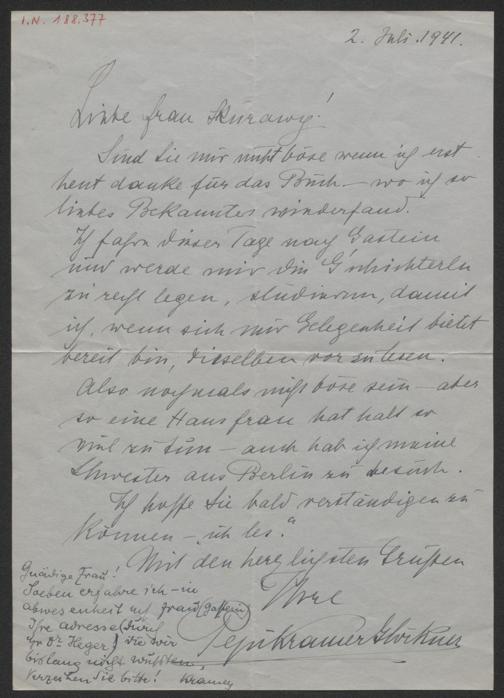 I.N. 188.377
2. Juli 1941.
Liebe Frau Skurawy!
Sind Sie mir nicht böse wenn ich erst
heut danke für das Buch – wo ich so
liebes Bekanntes wiederfand.
Ich fahre dieser Tage nach Gastein
und werde mir die G'schichterln
zu recht legen, studieren, damit
ich, wenn sich mir Gelegenheit bietet
bereit bin, dieselben vorzulesen.
Also nochmals nicht böse sein – aber
so eine Hausfrau hat halt so
viel zu tun – auch hab ich meine
Schwester aus Berlin zu besuch.
Ich hoffe Sie bald verständigen zu
können – „ich les."
Mit den herzlichsten Grüßen
Ihre
Pepi Kramer Glöckner
Gnädige Frau!
Soeben erfahre ich – in
abwesenheit mit Frau (Gastein)
Ihre adresse (durch
Dr. Heger) die wir
bislang nicht wußten,
Verzeihen Sie bitte! Kramer